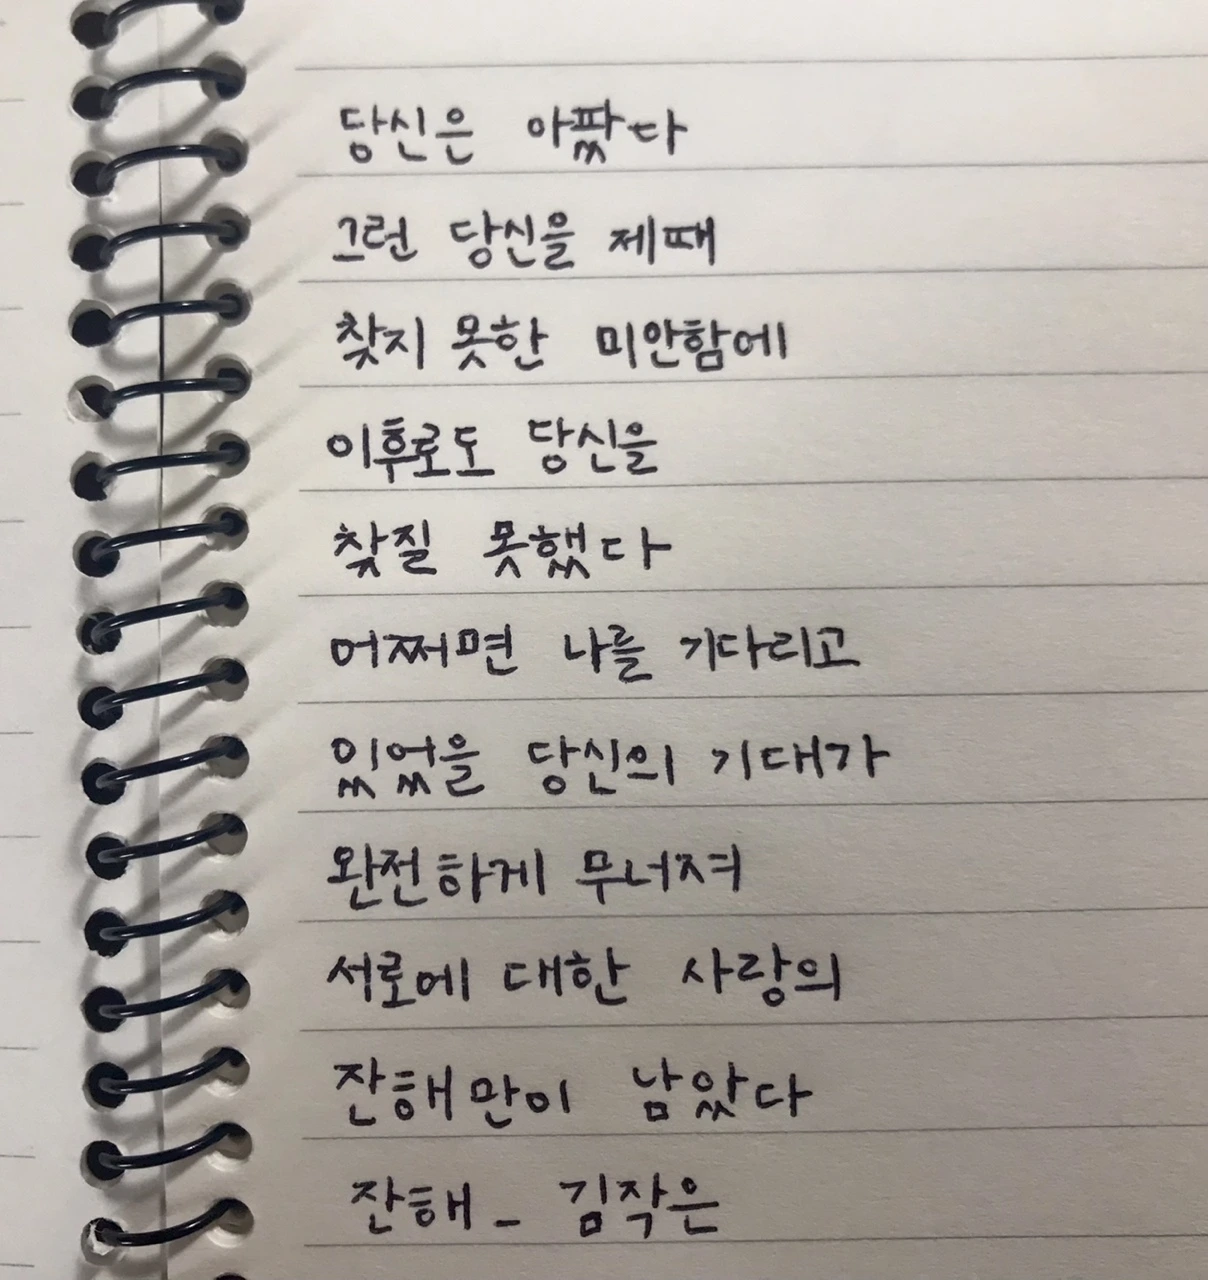 당신은 아팠다
그런 당신을 제때
찾지 못한 미안함에
이후로도 당신을
찾질 못했다
어쩌면 나를 기다리고
있었을 당신의 기대가
완전하게 무너져
서로에 대한 사랑의
잔해만이 남았다
잔해_ 김작은